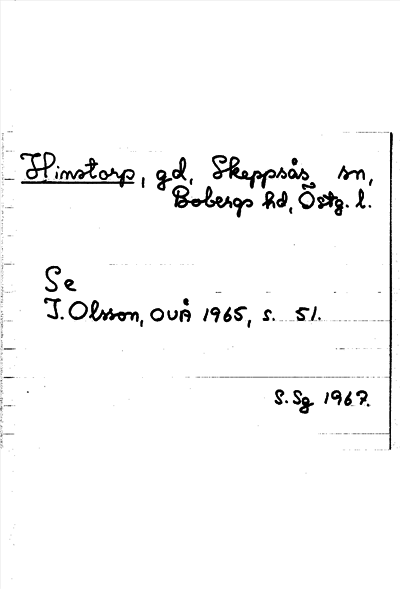 Hinstorp, gd, Skeppsås sn,
Bobergs hd, Östg. l.
Se
I. Olsson, OUÅ 1965, s. 51.
S.Sg 1967.